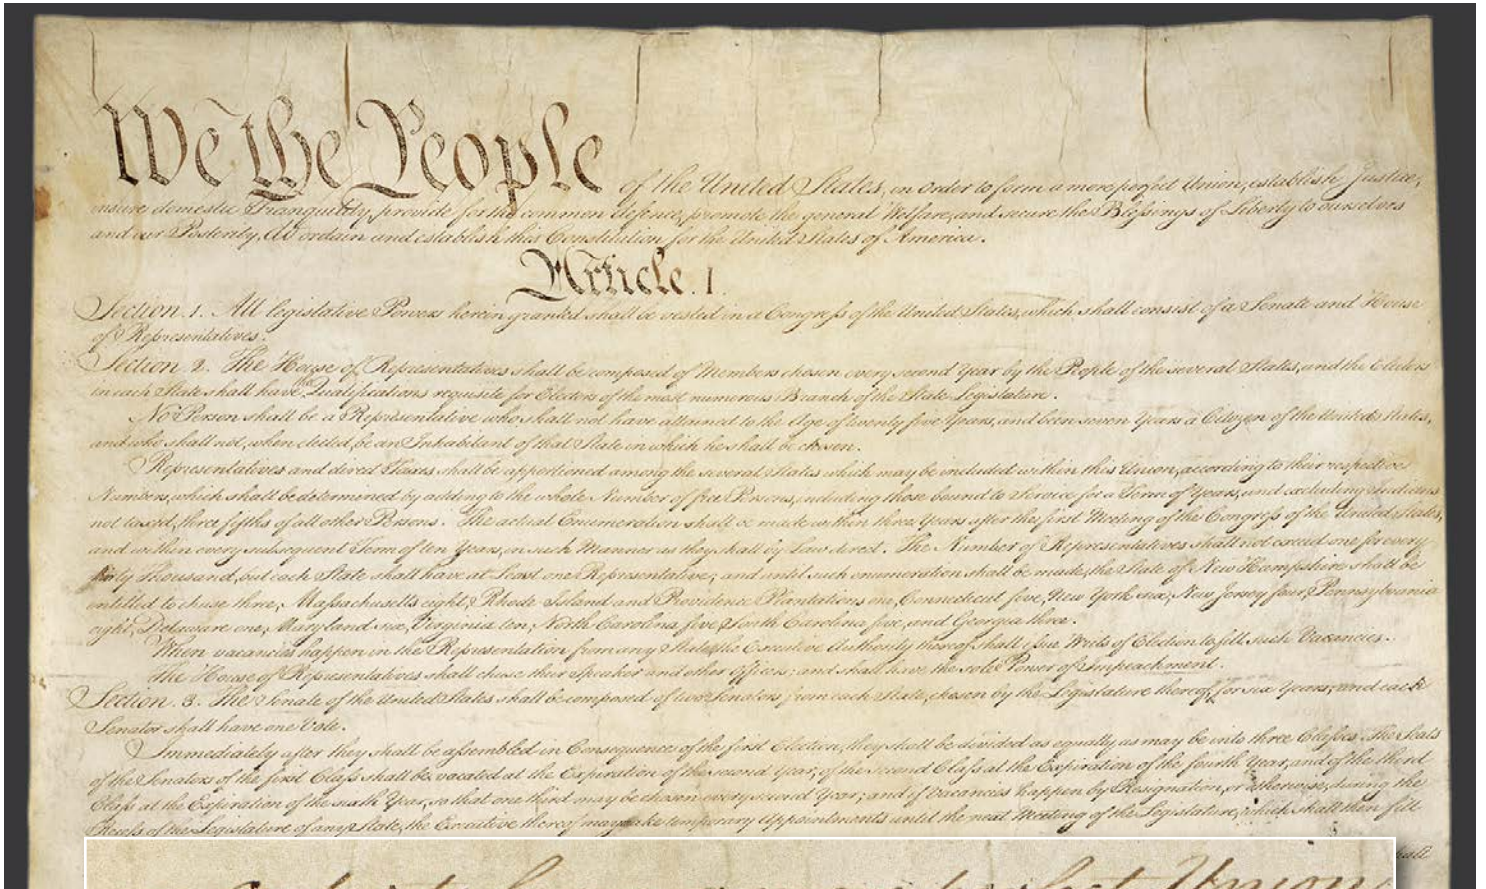 We the People of the United States, in Order to form a more perfect Union, establish Justice,
insure domestic Tranquility, provide for the common defence, promote the general Welfare, and secure the Blessings of Liberty to ourselves
and our Posterity, do ordain and establish this Constitution for the United States of America.
Article. I.
Section. 1. All legislative Powers herein granted shall be vested in a Congress of the United States, which shall consist of a Senate and House
of Representatives.
Section. 2. The House of Representatives shall be composed of Members chosen every second Year by the People of the several States, and the Electors
in each State shall have the Qualifications requisite for Electors of the most numerous Branch of the State Legislature.
No Person shall be a Representative who shall not have attained to the Age of twenty five Years, and been seven Years a Citizen of the United States,
and who shall not, when elected, be an Inhabitant of that State in which he shall be chosen.
Representatives and direct Taxes shall be apportioned among the several States which may be included within this Union, according to their respective
Numbers, which shall be determined by adding to the whole Number of free Persons, including those bound to Service for a Term of Years, and excluding Indians
not taxed, three fifths of all other Persons. The actual Enumeration shall be made within three Years after the first Meeting of the Congress of the United States,
and within every subsequent Term of ten Years, in such Manner as they shall by Law direct. The Number of Representatives shall not exceed one for every
thirty Thousand, but each State shall have at Least one Representative; and until such enumeration shall be made, the State of New Hampshire shall be
entitled to chuse three, Massachusetts eight, Rhode Island and Providence Plantations one, Connecticut five, New York six, New Jersey four, Pennsylvania
eight, Delaware one, Maryland six, Virginia ten, North Carolina five, South Carolina five, and Georgia three.
When vacancies happen in the Representation from any State, the Executive Authority thereof shall issue Writs of Election to fill such Vacancies.
The House of Representatives shall chuse their Speaker and other Officers; and shall have the sole Power of Impeachment.
Section. 3. The Senate of the United States shall be composed of two Senators from each State, chosen by the Legislature thereof, for six Years; and each
Senator shall have one Vote.
Immediately after they shall be assembled in Consequence of the first Election, they shall be divided as equally as may be into three Classes. The Seats
of the Senators of the first Class shall be vacated at the Expiration of the second Year, of the second Class at the Expiration of the fourth Year, and of the third
Class at the Expiration of the sixth Year, so that one third may be chosen every second Year; and if Vacancies happen by Resignation, or otherwise, during the
Recess of the Legislature of any State, the Executive thereof may make temporary Appointments until the next Meeting of the Legislature, which shall then fill
perfect Union